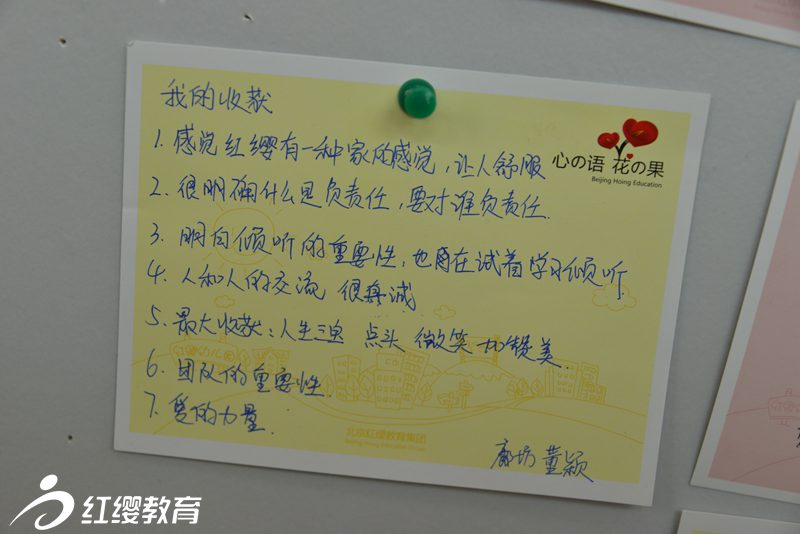 我的收获
心の语 花の果
Beijing Hoing Education
1. 感觉红缨有一种家的感觉，让人舒服
2. 很明确什么是负责任，要对谁负责任.
3. 明白倾听的重要性，也有在试着学习倾听.
4. 人和人的交流 很真诚
5. 最大收获：人生三宝 点头 微笑 加赞美.
6. 团队的重要性.
7. 爱的力量.
北京红缨教育集团
Beijing Hoing Education Group
廊坊 董颖
红缨教育